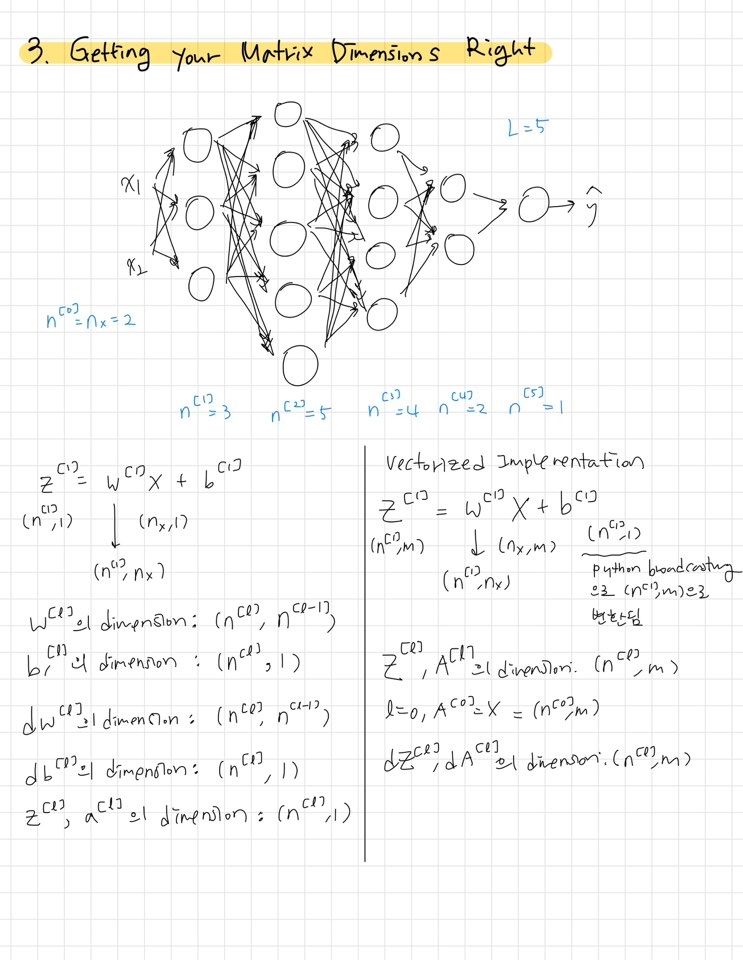 3. Getting your Matrix Dimensions Right
L=5
x₁
x₂
ŷ
n^[0]=nx=2
n^[1]=3 n^[2]=5 n^[3]=4 n^[4]=2 n^[5]=1
z^[1]= w^[1]x + b^[1]
(n^[1],1) (nx,1)
(n^[1],nx)
w^[l]의 dimension: (n^[l], n^[l-1])
b^[l]의 dimension : (n^[l], 1)
dw^[l]의 dimension: (n^[l], n^[l-1])
db^[l]의 dimension: (n^[l], 1)
z^[l], a^[l]의 dimension : (n^[l],1)
Vectorized Implementation
Z^[1] = w^[1]X + b^[1]
(n^[1],m) (nx,m) (n^[1],1)
(n^[1],nx)
python broadcasting
으로 (n^[1],m)으로
변환됨
Z^[l], A^[l]의 dimension. (n^[l], m)
l=0, A^[0]=X = (n^[0],m)
dZ^[l], dA^[l]의 dimension. (n^[l],m)